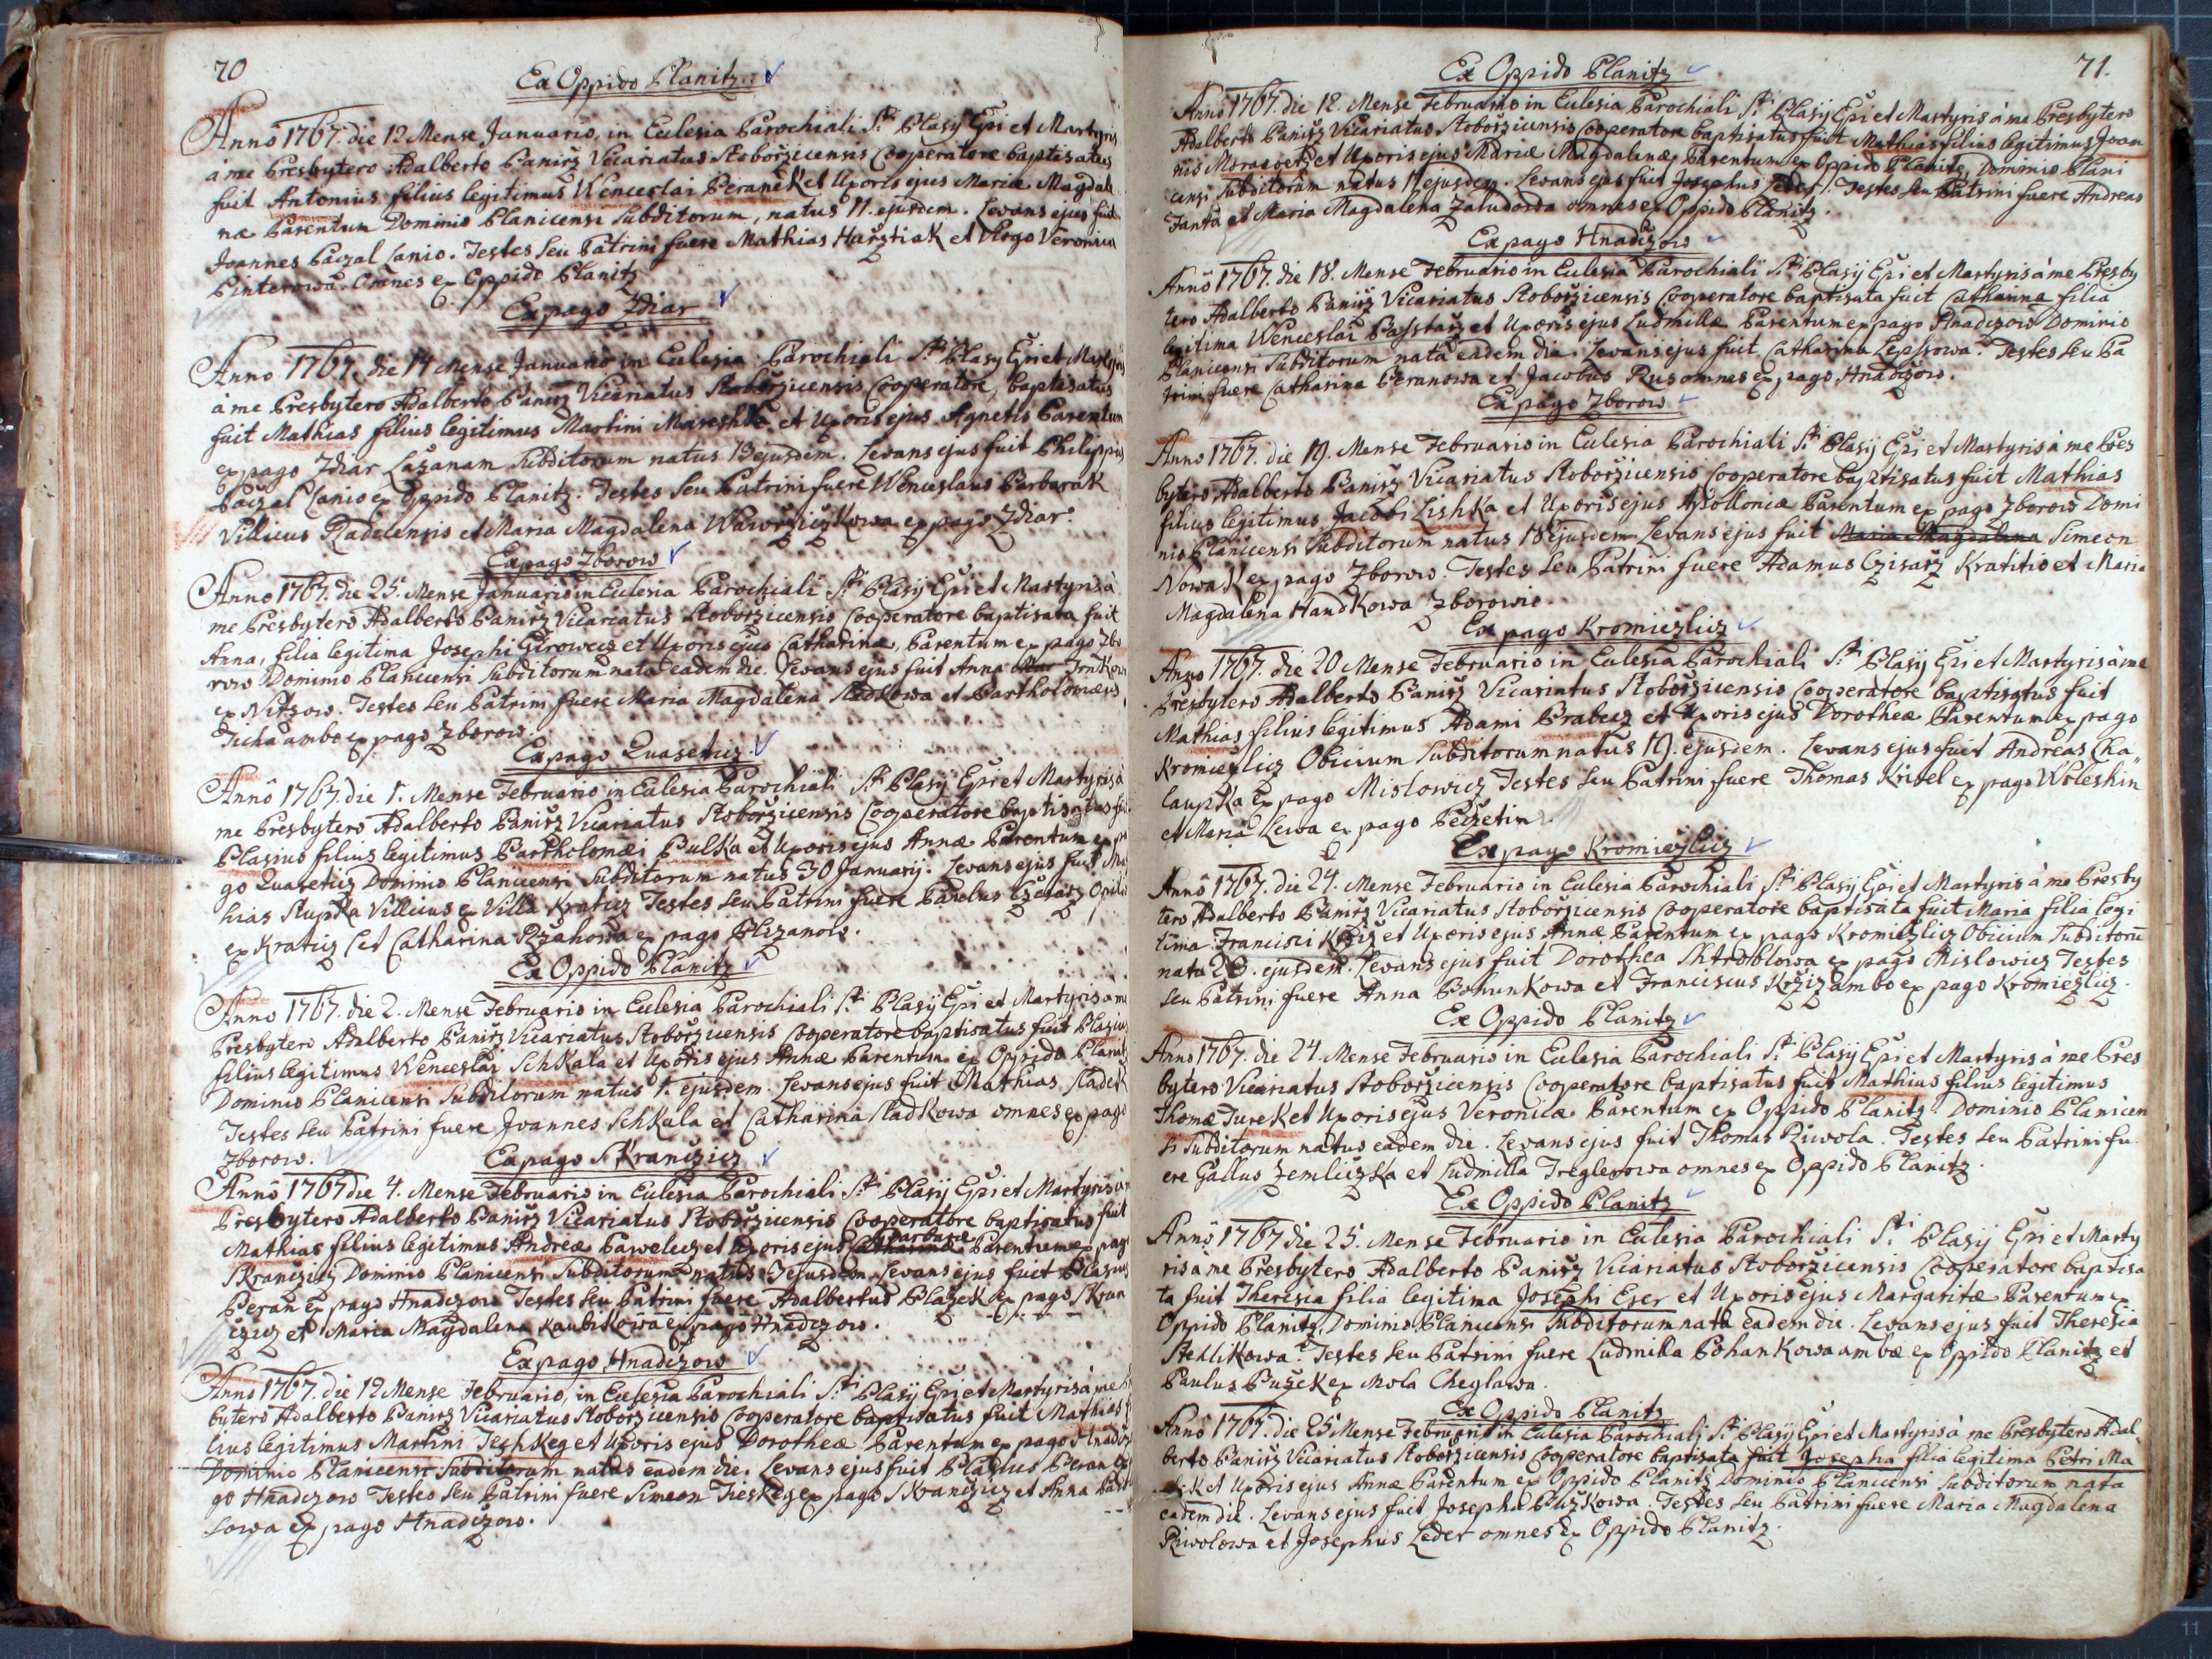 70
Ex Oppido Planitz.
Anno 1767. die 12 Mense Januario, in Eclesia Parochiali S.ti Blasij Epi et Martyris
à me Presbytero Adalberto Panirz Vicariatus Stoborzicensis Cooperatore baptisatus
fuit Antonius filius legitimus Wenceslai Peranek et Uxoris ejus Mariæ Magdale
næ Parentum Dominio Planicensi Subditorum, natus 11. ejusdem. Levans ejus fuit
Joannes Paczal Lanio. Testes seu Patrini fuere Mathias Harstiak et Virgo Veronica
Pinterowa. Omnes ex Oppido Planitz
Ex pago Zdiar
Anno 1767. die 14 Mense Januario in Eclesia Parochiali S.ti Blasy Epi et Martyris
à me Presbytero Adalberto Panirz Vicariatus Stoborzicensis Cooperatore, baptisatus
fuit Mathias filius legitimus Martini Mareshk et Uxoris ejus Agnetis Parentum
ex pago Zdiar Lazanam Subditorum natus 13 ejusdem. Levans ejus fuit Philippus
Paczal Lanio ex Oppido Planitz. Testes seu Patrini fuere Wenceslaus Barbarak
Villicus Radelensis et Maria Magdalena Waworziczkowa ex pago Zdiar.
Ex pago Zborow
Anno 1767. die 25. Mense Januario in Eclesia Parochiali S.ti Blasij Epi et Martyris à
me Presbytero Adalberto Panirz Vicariatus Stoborzicensis Cooperatore baptisata fuit
Anna, filia legitima Josephi Girowecz et Uxoris ejus Catharinæ, Parentum ex pago Zbo
row Dominio Planicensi Subditorum nata eadem die. Levans ejus fuit Anna Trnkow
ex Nitzow. Testes seu Patrini fuere Maria Magdalena Sladkowa et Bartholomæus
Tucha ambo ex pago Zborow.
Ex pago Quaseticz
Anno 1767. die 1. Mense Februario in Eclesia Parochiali S.ti Blasij Epi et Martyris à
me Presbytero Adalberto Panirz Vicariatus Stoborzicensis Cooperatore baptisatus fu
Blasius filius legitimus Bartholomæi Pulka et Uxoris ejus Annæ Parentum ex pa
go Quaseticz Dominio Planicensi Subditorum natus 30 Januarij. Levans ejus fuit Ma
hias Slupka Villicus ex Villa Kraticz Testes seu Patrini fuere Paulus Czisarz Opili
ex Kraticz et Catharina Rzahowa ex pago Blizanow.
Ex Oppido Planitz
Anno 1767. die 2. Mense Februario in Eclesia Parochiali S.ti Blasij Epi et Martyris à me
Presbytero Adalberto Panirz Vicariatus Stoborzicensis Cooperatore baptisatus fuit Blasius
filius legitimus Wenceslai Schkala et Uxoris ejus Annæ Parentum ex Oppido Planitz
Dominio Planicensi Subditorum natus 1. ejusdem. Levans ejus fuit Mathias Sladek
Testes seu Patrini fuere Joannes Schkala et Catharina Sladkowa omnes ex pago
Zborow.
Ex pago Skranczicz
Anno 1767 die 4. Mense Februario in Eclesia Parochiali S.ti Blasij Epi et Martyris à
Presbytero Adalberto Panirz Vicariatus Stoborzicensis Cooperatore baptisatus fuit
Barbaræ
Mathias filius legitimus Andreæ Pawelecz et Uxoris ejus Catharinæ Parentum ex pag
Skranczicz Dominio Planicensi Subditorum natus ejusdem. Levans ejus fuit Blasius
Peran ex pago Hnadczow Testes seu Patrini fuere Adalbertus Blazek ex pago Skran
czicz et Maria Magdalena Kaubkowa ex pago Hnadczow.
Ex pago Hnadczow
Anno 1767. die 12 Mense Februario, in Eclesia Parochiali S.ti Blasij Epi et Martyris à me
bytero Adalberto Panirz Vicariatus Stoborzicensis Cooperatore baptisatus fuit Mathias
lius legitimus Martini Jeshkeg et Uxoris ejus Dorotheæ Parentum ex pago Hnadcz
Dominio Planicensi Subditorum natus eadem die. Levans ejus fuit Blasius Peran
go Hnadczow Testes seu Patrini fuere Simeon Treskeg ex pago Skranczicz et Anna
sowa ex pago Hnadczow.
71.
Ex Oppido Planitz
Anno 1767. die 12. Mense Februario in Eclesia Parochiali S.ti Blasij Epi et Martyris à me Presbytero
Adalberto Panirz Vicariatus Stoborzicensis Cooperatore baptisatus fuit Mathias filius legitimus Joan
nis Morawetz et Uxoris ejus Mariæ Magdalenæ, Parentum ex Oppido Planitz, Dominio Plani
censi Subditorum natus 11 ejusdem. Levans ejus fuit Josephus Leder. Testes seu Patrini fuere Andreas
Janta et Maria Magdalena Zaludowa omnes ex Oppido Planitz.
Ex pago Hnadczow
Anno 1767. die 18. Mense Februario in Eclesia Parochiali S.ti Blasij Epi et Martyris à me Presby
tero Adalberto Panirz Vicariatus Stoborzicensis Cooperatore baptisata fuit Catharina filia
legitima Wenceslai Passtarz et Uxoris ejus Ludmillæ Parentum ex pago Hnadczow Dominio
Planicensi Subditorum nata eadem die. Levans ejus fuit Catharina Lepssowa. Testes seu Pa
trini fuere Catharina Peranowa et Jacobus Rus omnes ex pago Hnadczow.
Ex pago Zborow
Anno 1767. die 19. Mense Februario in Eclesia Parochiali S.ti Blasij Epi et Martyris à me Pres
bytero Adalberto Panirz Vicariatus Stoborzicensis Cooperatore baptisatus fuit Mathias
filius legitimus Jacobi Lishka et Uxoris ejus Apolloniæ Parentum ex pago Zborow Domi
nio Planicensi Subditorum natus 18 ejusdem Levans ejus fuit Maria Magdalena Simeon
Nowak ex pago Zborow. Testes seu Patrini fuere Adamus Czisarz Kratitio et Maria
Magdalena Handkowa Zborowio.
Ex pago Kromiezlicz
Anno 1767. die 20 Mense Februario in Eclesia Parochiali S.ti Blasij Epi et Martyris à me
Presbytero Adalberto Panirz Vicariatus Stoborzicensis Cooperatore baptisatus fuit
Mathias filius legitimus Adami Brabecz et Uxoris ejus Dorotheæ Parentum ex pago
Kromiezlicz Obicium Subditorum natus 19. ejusdem. Levans ejus fuit Andreas Cha
laupka ex pago Mislowicz Testes seu Patrini fuere Thomas Krisel ex pago Woleshin
et Maria Lewa ex pago Peczetin.
Ex pago Kromiezlicz
Anno 1767. die 24. Mense Februario in Eclesia Parochiali S.ti Blasij Epi et Martyris à me Presby
tero Adalberto Panirz Vicariatus Stoborzicensis Cooperatore baptisata fuit Maria filia legi
tima Francisci Krziz et Uxoris ejus Annæ Parentum ex pago Kromiezlicz Obicium Subditorū
nata 23. ejusdem. Levans ejus fuit Dorothea Skrdblowa ex pago Mislowicz Testes
seu Patrini fuere Anna Bohunkowa et Franciscus Krziz ambo ex pago Kromiezlicz.
Ex Oppido Planitz
Anno 1767. die 24. Mense Februario in Eclesia Parochiali S.ti Blasij Epi et Martyris à me Pres
bytero Vicariatus Stoborzicensis Cooperatore baptisatus fuit Mathias filius legitimus
Thomæ Turek et Uxoris ejus Veronicæ Parentum ex Oppido Planitz Dominio Planicen
si Subditorum natus eadem die. Levans ejus fuit Thomas Rziwola. Testes seu Patrini fu
ere Gallus Zemliczka et Ludmilla Treglerowa omnes ex Oppido Planitz.
Ex Oppido Planitz
Anno 1767 die 25. Mense Februario in Eclesia Parochiali S.ti Blasij Epi et Marty
ris à me Presbytero Adalberto Panirz Vicariatus Stoborzicensis Cooperatore baptisa
ta fuit Theresia filia legitima Josephi Eser et Uxoris ejus Margaritæ Parentum ex
Oppido Planitz, Dominio Planicensi Subditorum nata eadem die. Levans ejus fuit Theresia
Stehlikowa. Testes seu Patrini fuere Ludmilla Bohankowa ambæ ex Oppido Planitz et
Paulus Puzek ex Mola Cheglawa.
Ex Oppido Planitz
Anno 1767. die 25 Mense Februario in Eclesia Parochiali S.ti Blasij Epi et Martyris à me Presbytero Adal
berto Panirz Vicariatus Stoborzicensis Cooperatore baptisata fuit Josepha filia legitima Petri Ma
et Uxoris ejus Annæ Parentum ex Oppido Planitz Dominio Planicensi Subditorum nata
eadem die. Levans ejus fuit Josepha Puzkowa. Testes seu Patrini fuere Maria Magdalena
Rziwolowa et Josephus Leder omnes ex Oppido Planitz.
11